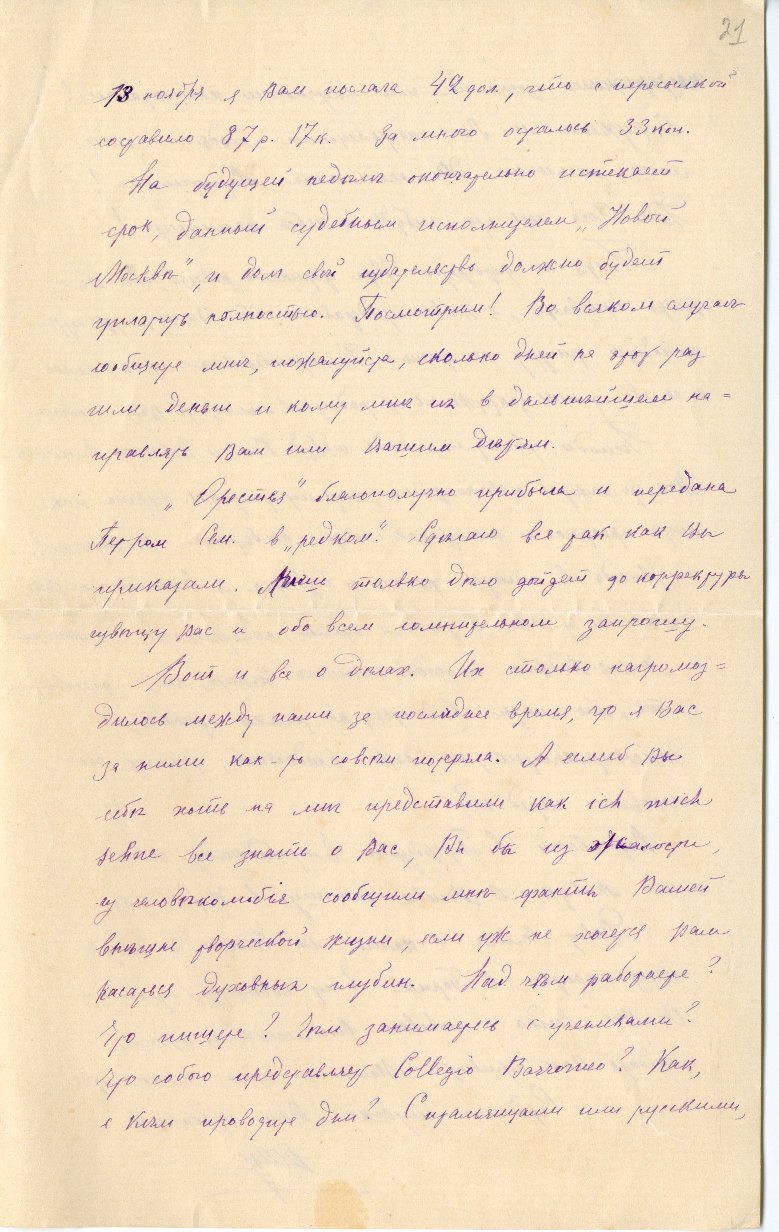 21
13 ноября я Вам послала 42 дол., что с пересылкой
составило 87 р. 17 к. За мною осталось 33 коп.
На будущей недѣлѣ окончательно истекает
срок, данный судебным исполнителем „Новой
Москвѣ", и долг свой издательство должно будет
уплатить полностью. Посмотрим! Во всяком случаѣ
сообщите мнѣ, пожалуйста, сколько дней на этот раз
шли деньги и кому мнѣ их в дальнѣйшем на=
правлять Вам или Вашим дѣтям.
„Орестея" благополучно прибыла и передана
Петром Сем. в „редком". Сдѣлаю все так как Вы
приказали. Лишь только дѣло дойдет до корректуры
извѣщу Вас и обо всем сомнительном запрошу.
Вот и все о дѣлах. Их столько нагромоз=
дилось между нами за послѣднее время, что я Вас
за ними как-то совсѣм потеряла. А еслиб Вы
себѣ хоть на миг представили как ich mich
sehne все знать о Вас, Вы бы из жалости,
из человѣколюбія сообщили мнѣ факты Вашей
внѣшне творческой жизни, если уж не хочется Вам
касаться духовных глубин. Над чѣм работаете?
Что пишете? Чѣм занимаетесь с учениками?
Что собою представляет Collegio Borromeo? Как,
с кѣм проводите дни? С итальянцами или русскими,